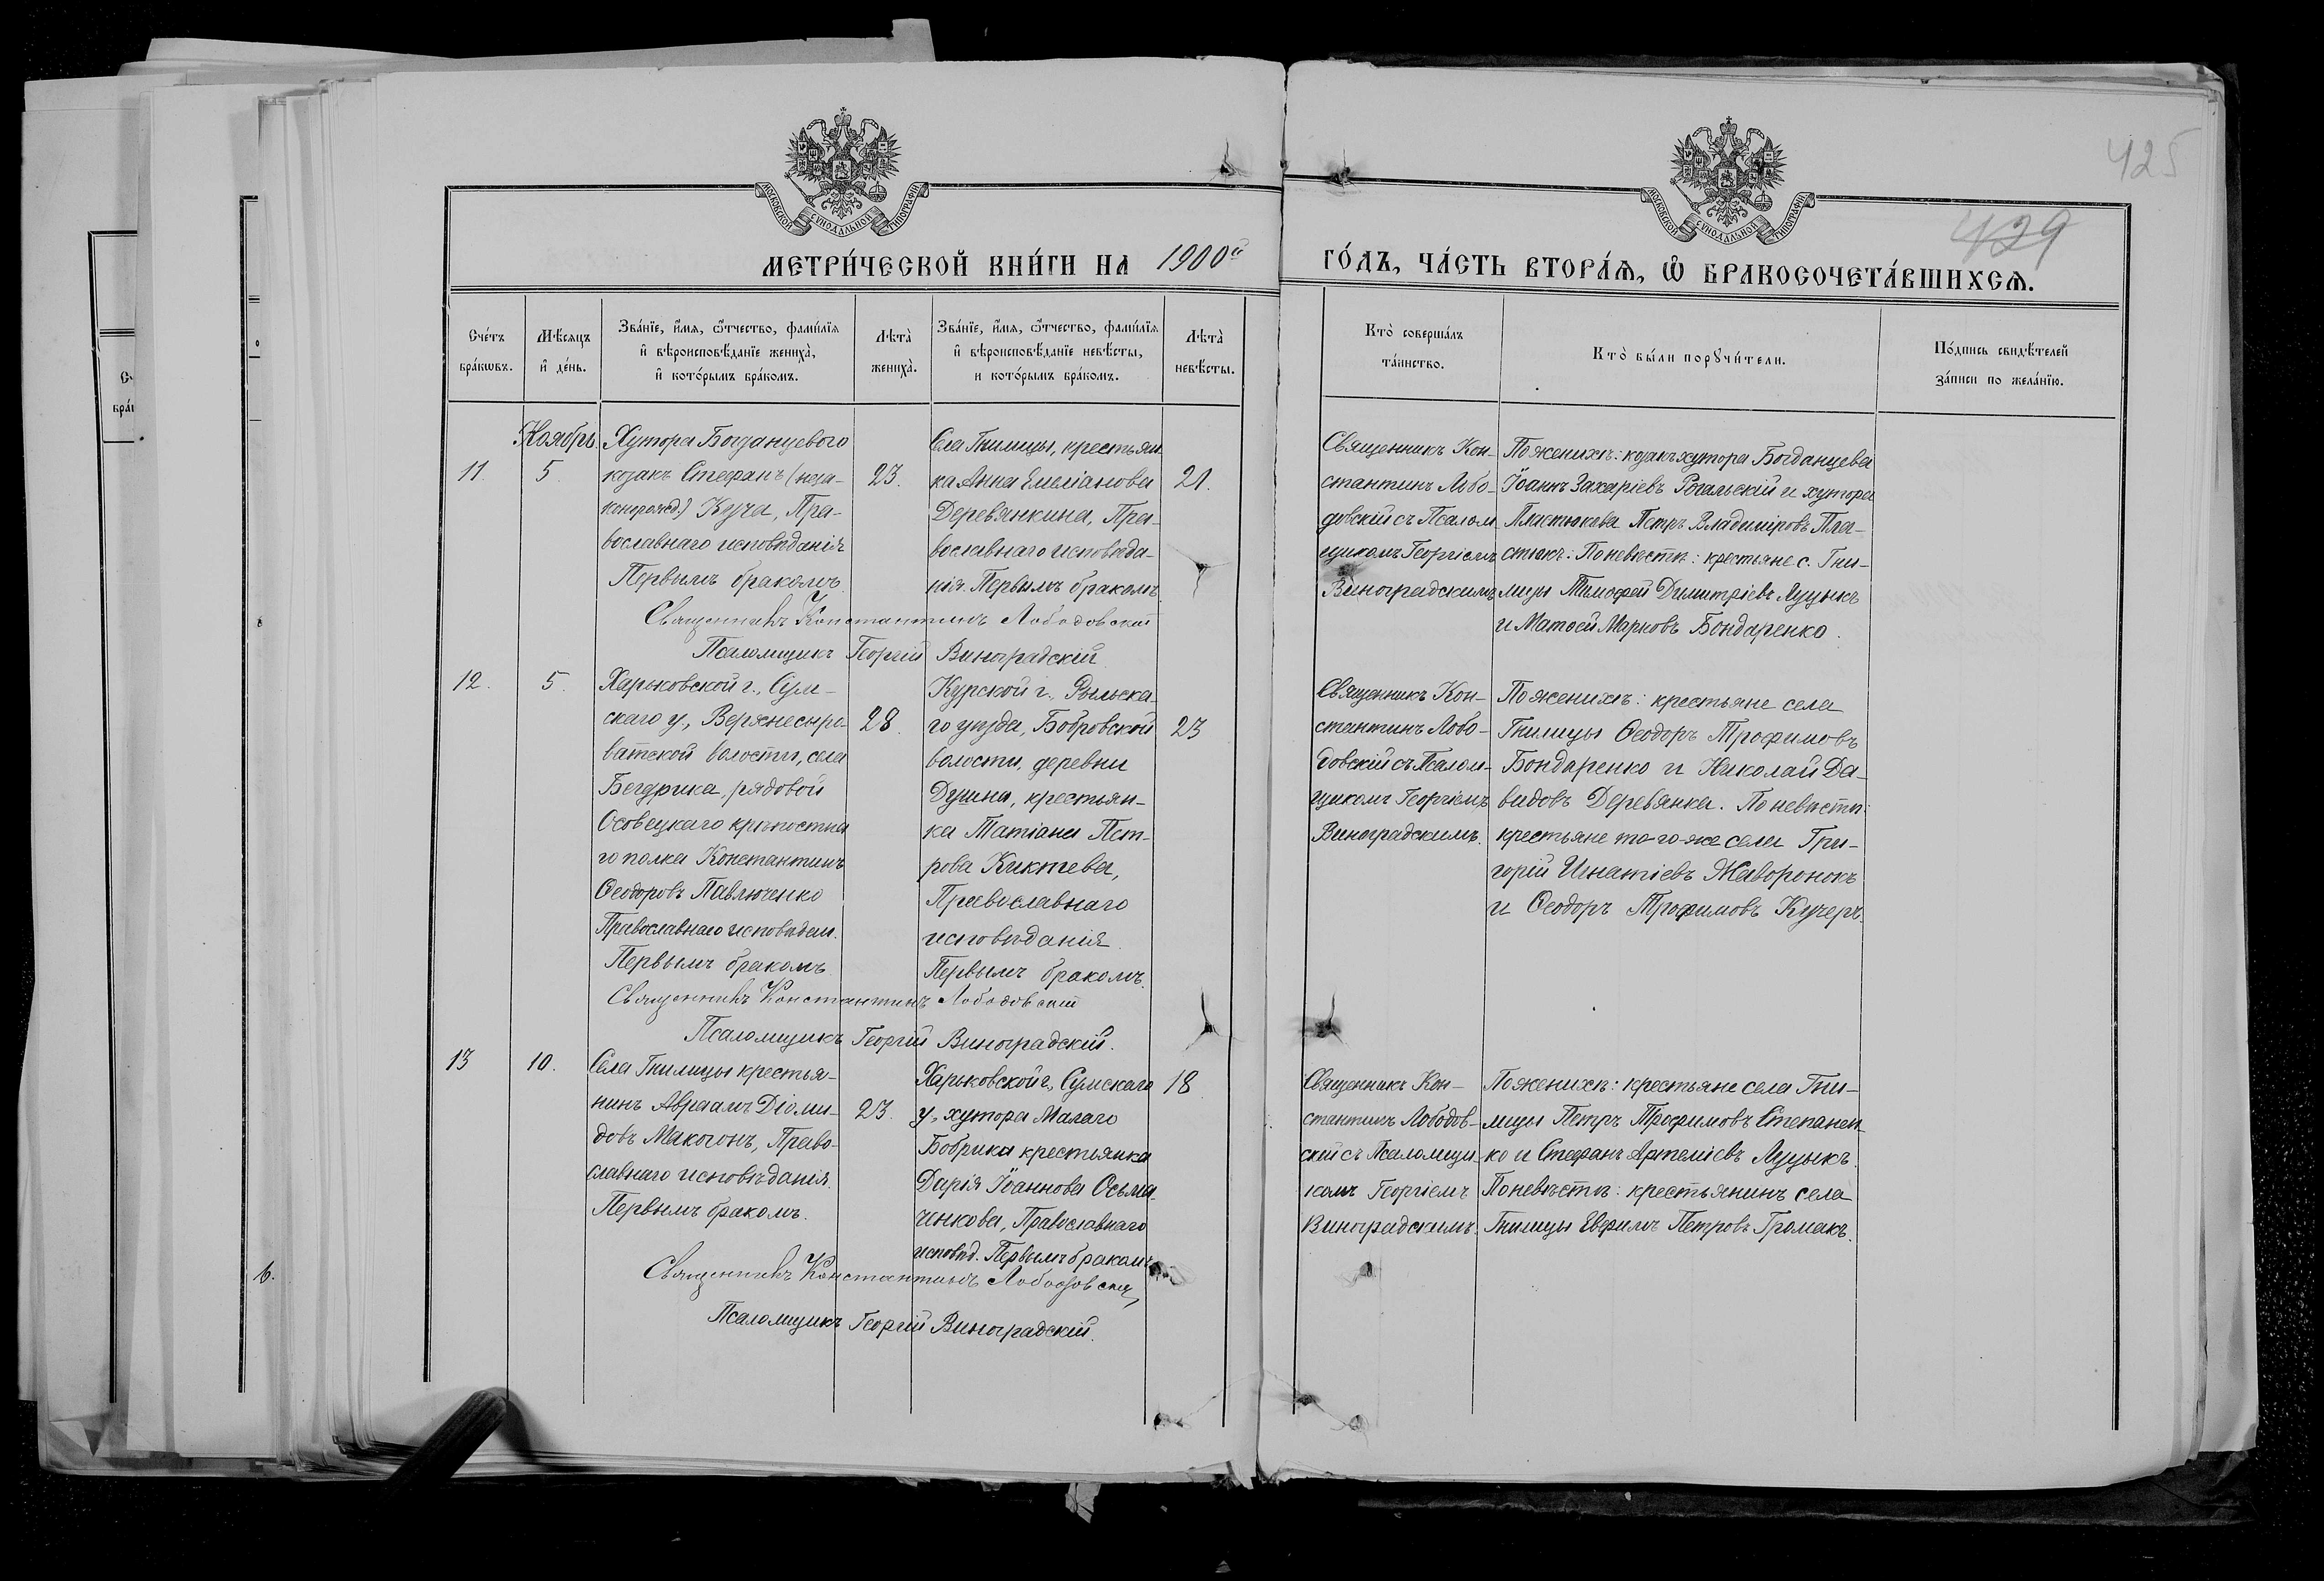 425
429
МОСКОВСКОЙ СѴНОДАЛЬНОЙ ТИПОГРАФІИ
МОСКОВСКОЙ СѴНОДАЛЬНОЙ ТИПОГРАФІИ
МЕТРИ́ЧЕСКОЙ КНИ́ГИ НА 1900й
ГО́ДЪ, ЧА́СТЬ ВТОРА́Ѧ, Ѽ БРАКОСОЧЕТА́ВШИХСѦ.
Сче́тъ бра́кѡвъ.
Мѣ́сяцъ и҆ де́нь.
Зва́нїе, и҆́мѧ, ѻ҆́тчество, фами́лїѧ
и҆ вѣроисповѣ́данїе жениха̀,
и҆ кото́рымъ бра́комъ.
Лѣта̀ жениха̀.
Зва́нїе, и҆́мѧ, ѻ҆́тчество, фами́лїѧ
и҆ вѣроисповѣ́данїе невѣ́сты,
и кото́рымъ бра́комъ.
Лѣта̀ невѣ́сты.
Кто̀ соверша́лъ
та́инство.
Кто̀ бы́ли порꙋчи́тели.
По́дпись свидѣ́телей
за́писи по жела́нїю.
Ноябрь
11.
5
Хутора Богданцевого
козакъ Стефанъ (неза-
коннорожд.) Куча, Пра-
вославнаго исповѣданія
Первымъ бракомъ.
23.
Села Гнилицы, крестьян
ка Анна Емеліанова
Деревянкина, Пра-
вославнаго исповѣда-
нія. Первымъ бракомъ
21.
Священникъ Кон-
стантинъ Лобо-
довскій съ Псалом-
щикомъ Георгіемъ
Виноградскимъ
По женихѣ: козакъ хутора Богданцева
Іоаннъ Захаріевъ Рогальскій и хутора
Пластюкова Петръ Владиміровъ Пла-
стюкъ: По невѣстѣ: крестьяне с. Гни-
лицы Тимофей Димитріевъ Луцыкъ
и Матѳей Марковъ Бондаренко.
Священникъ Константинъ Лободовскій
Псаломщикъ Георгій Виноградскій
12.
5.
Харьковской г., Сум-
скаго у., Верхнесыро-
ватской волости, села
рядовой
Осовецкаго крѣпостна
го полка Константинъ
Ѳеодоровъ Павлюченко
Православнаго исповѣдан.
Первымъ бракомъ
28.
Курской г., Рыльска-
го уѣзда, Бобровской
волости, деревни
крестьян-
ка Татіана Пет-
рова Киктева,
Православнаго
исповѣданія.
Первымъ бракомъ.
23
Священникъ Кон-
стантинъ Лобо-
довскій съ Псалом-
щикомъ Георгіемъ
Виноградскимъ.
По женихѣ: крестьяне села
Гнилицы Ѳеодоръ Трофимовъ
Бондаренко и Николай Да-
видовъ Деревянка. По невѣстѣ:
крестьяне того-же села Гри-
горій Игнатіевъ Жаворонокъ
и Ѳеодоръ Трофимовъ Кучеръ.
Священникъ Константинъ Лободовскій
Псаломщикъ Георгій Виноградскій.
13
10.
Села Гнилицы крестья-
нинъ Авраамъ Діоми-
довъ Макогонъ, Право-
славнаго исповѣданія.
Первымъ бракомъ.
23.
Харьковской г., Сумскаго
у., хутора Малаго
Бобрика крестьянка
Дарія Іоаннова Осьма-
ченкова, Православнаго
исповѣд. Первымъ бракомъ
18
Священникъ Кон-
стантинъ Лободов-
скій съ Псаломщи-
комъ Георгіемъ
Виноградскимъ.
По женихѣ: крестьяне села Гни-
лицы Петръ Трофимовъ Степанен-
ко и Стефанъ Артеміевъ Луцыкъ.
По невѣстѣ: крестьянинъ села
Гнилицы Евфимъ Петровъ Громакъ.
Священникъ Константинъ Лободовскій
Псаломщикъ Георгій Виноградскій.